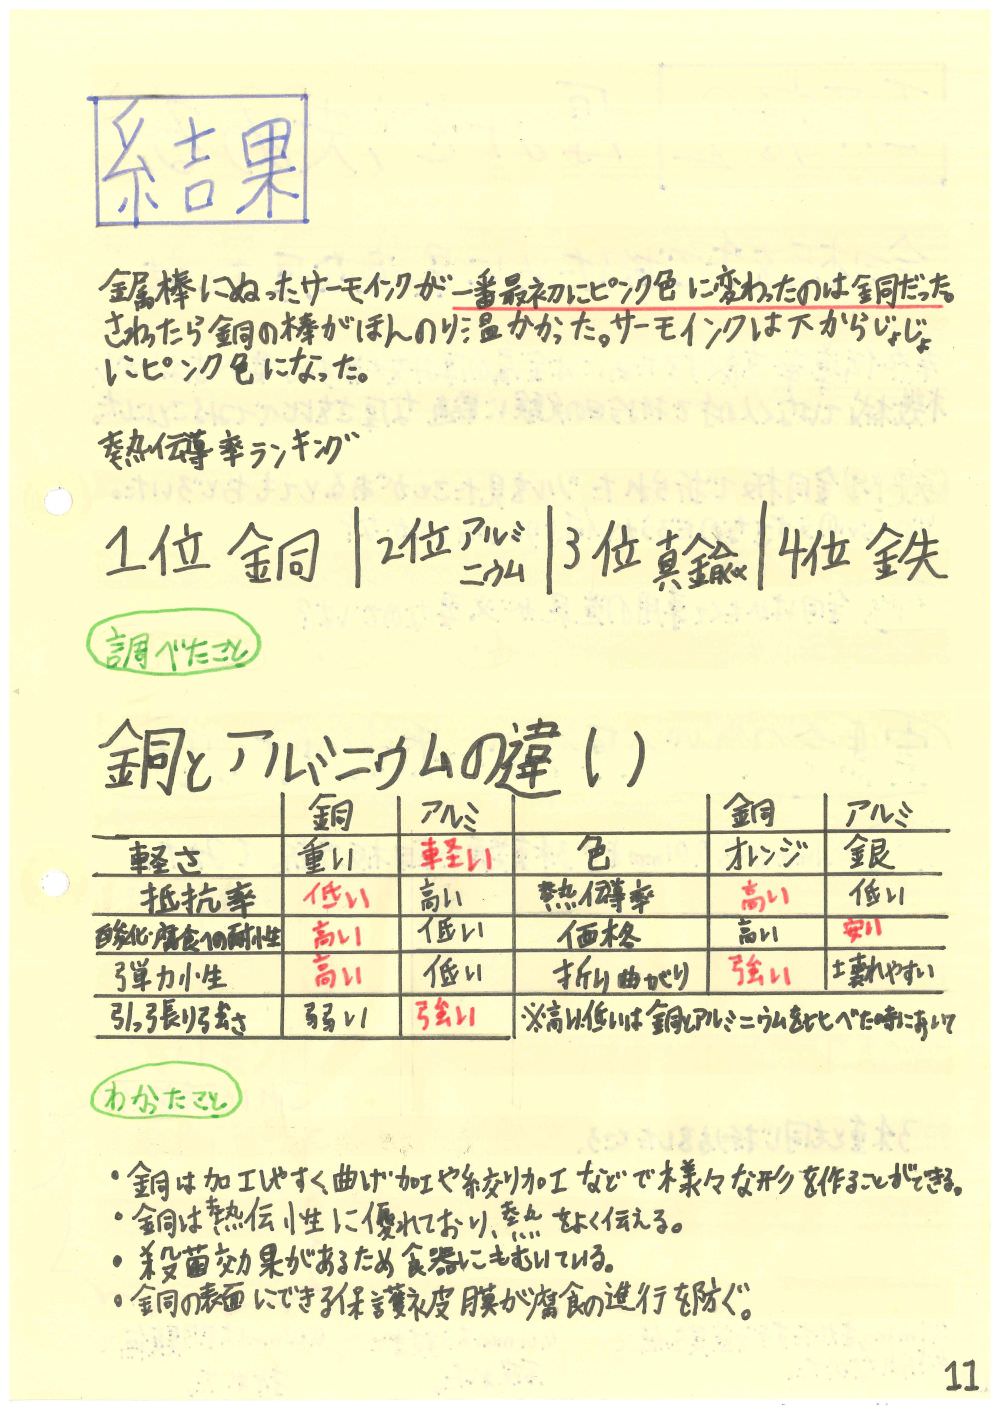 結果
金属棒にぬったサーモインクが一番最初にピンク色に変わったのは銅だった。
さわったら銅の棒がほんのり温かかった。サーモインクは下からじょじょ
にピンク色になった。
熱伝導率ランキング
1位 銅 | 2位 アルミニウム | 3位 真鍮 | 4位 鉄
調べたこと
銅とアルミニウムの違い
銅 アルミ 銅 アルミ
軽さ 重い 軽い 色 オレンジ 銀
抵抗率 低い 高い 熱伝導率 高い 低い
酸化・腐食への耐性 高い 低い 価格 高い 安い
弾力性 高い 低い 折り曲がり 強い 壊れやすい
引っ張り強さ 弱い 強い ※高い、低いは銅とアルミニウムを比べた時において
わかったこと
・銅は加工しやすく、曲げ加工や絞り加工などで様々な形を作ることができる。
・銅は熱伝性に優れており、熱をよく伝える。
・殺菌効果があるため食器にもむいている。
・銅の表面にできる保護皮膜が腐食の進行を防ぐ。
11